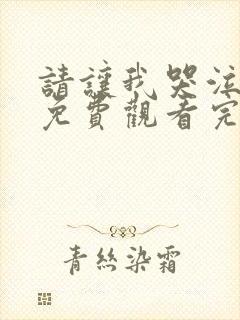 請讓我哭泣
免費觀看完
青絲染霜